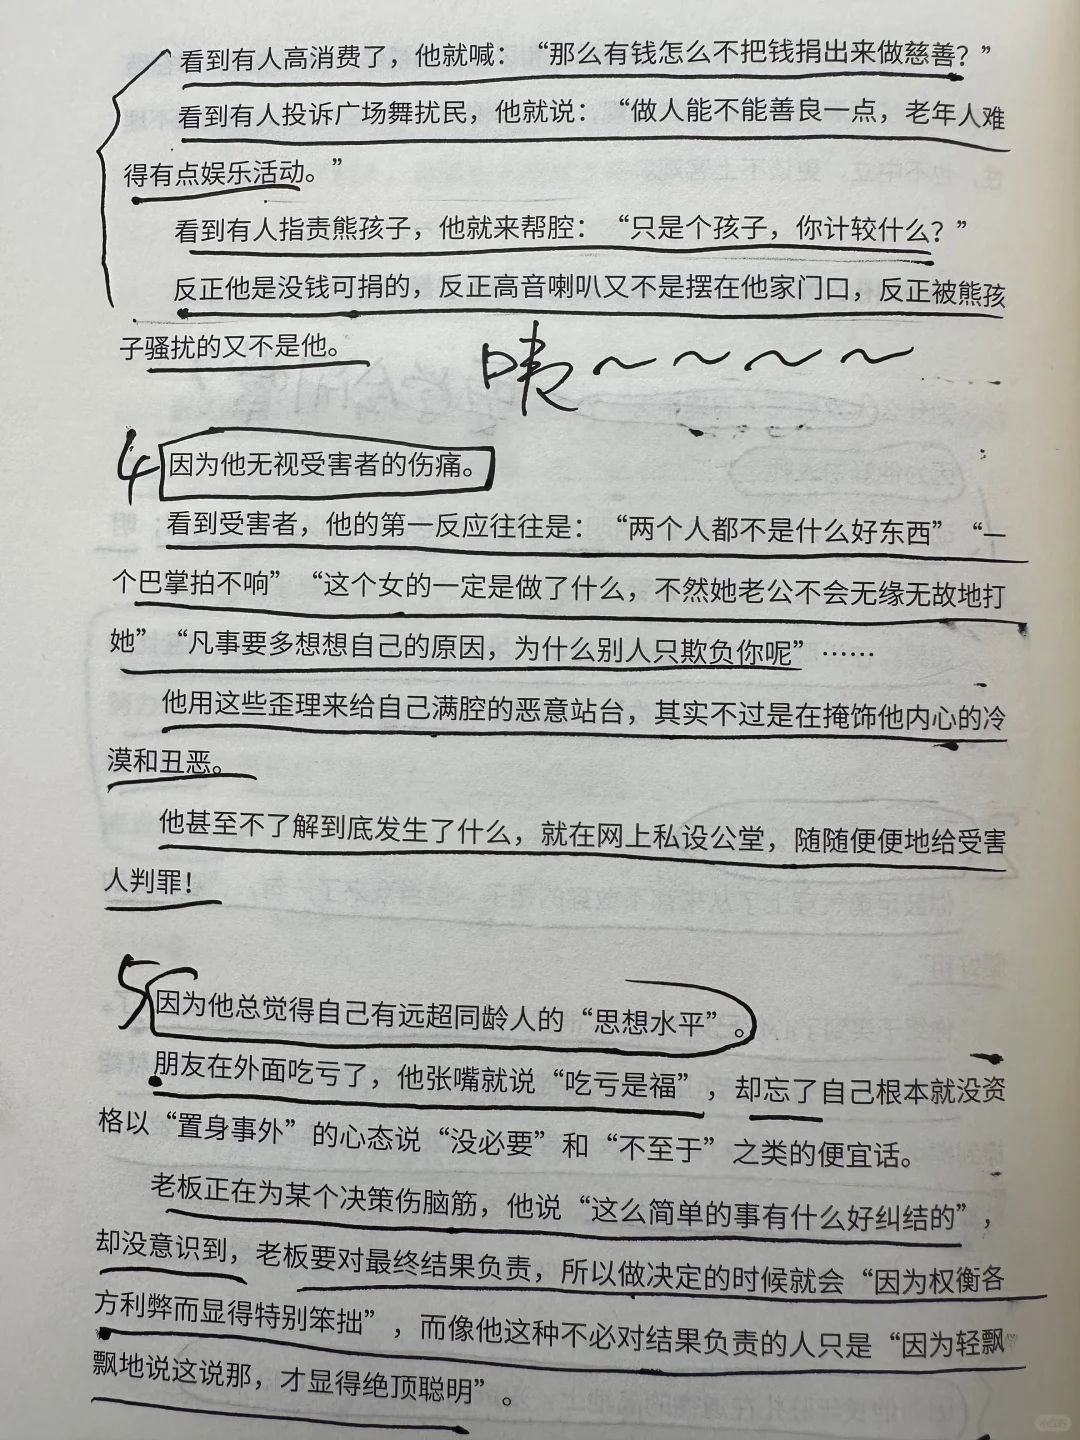 看到有人高消费了，他就喊：“那么有钱怎么不把钱捐出来做慈善？”
看到有人投诉广场舞扰民，他就说：“做人能不能善良一点，老年人难
得有点娱乐活动。”
看到有人指责熊孩子，他就来帮腔：“只是个孩子，你计较什么？”
反正他是没钱可捐的，反正高音喇叭又不是摆在他家门口，反正被熊孩
子骚扰的又不是他。
咦～～～～
4 因为他无视受害者的伤痛。
看到受害者，他的第一反应往往是：“两个人都不是什么好东西”“一
个巴掌拍不响”“这个女的一定是做了什么，不然她老公不会无缘无故地打
她”“凡事要多想想自己的原因，为什么别人只欺负你呢”……
他用这些歪理来给自己满腔的恶意站台，其实不过是在掩饰他内心的冷
漠和丑恶。
他甚至不了解到底发生了什么，就在网上私设公堂，随随便便地给受害
人判罪！
5 因为他总觉得自己有远超同龄人的“思想水平”。
朋友在外面吃亏了，他张嘴就说“吃亏是福”，却忘了自己根本就没资
格以“置身事外”的心态说“没必要”和“不至于”之类的便宜话。
老板正在为某个决策伤脑筋，他说“这么简单的事有什么好纠结的”，
却没意识到，老板要对最终结果负责，所以做决定的时候就会“因为权衡各
方利弊而显得特别笨拙”，而像他这种不必对结果负责的人只是“因为轻飘
飘地说这说那，才显得绝顶聪明”。